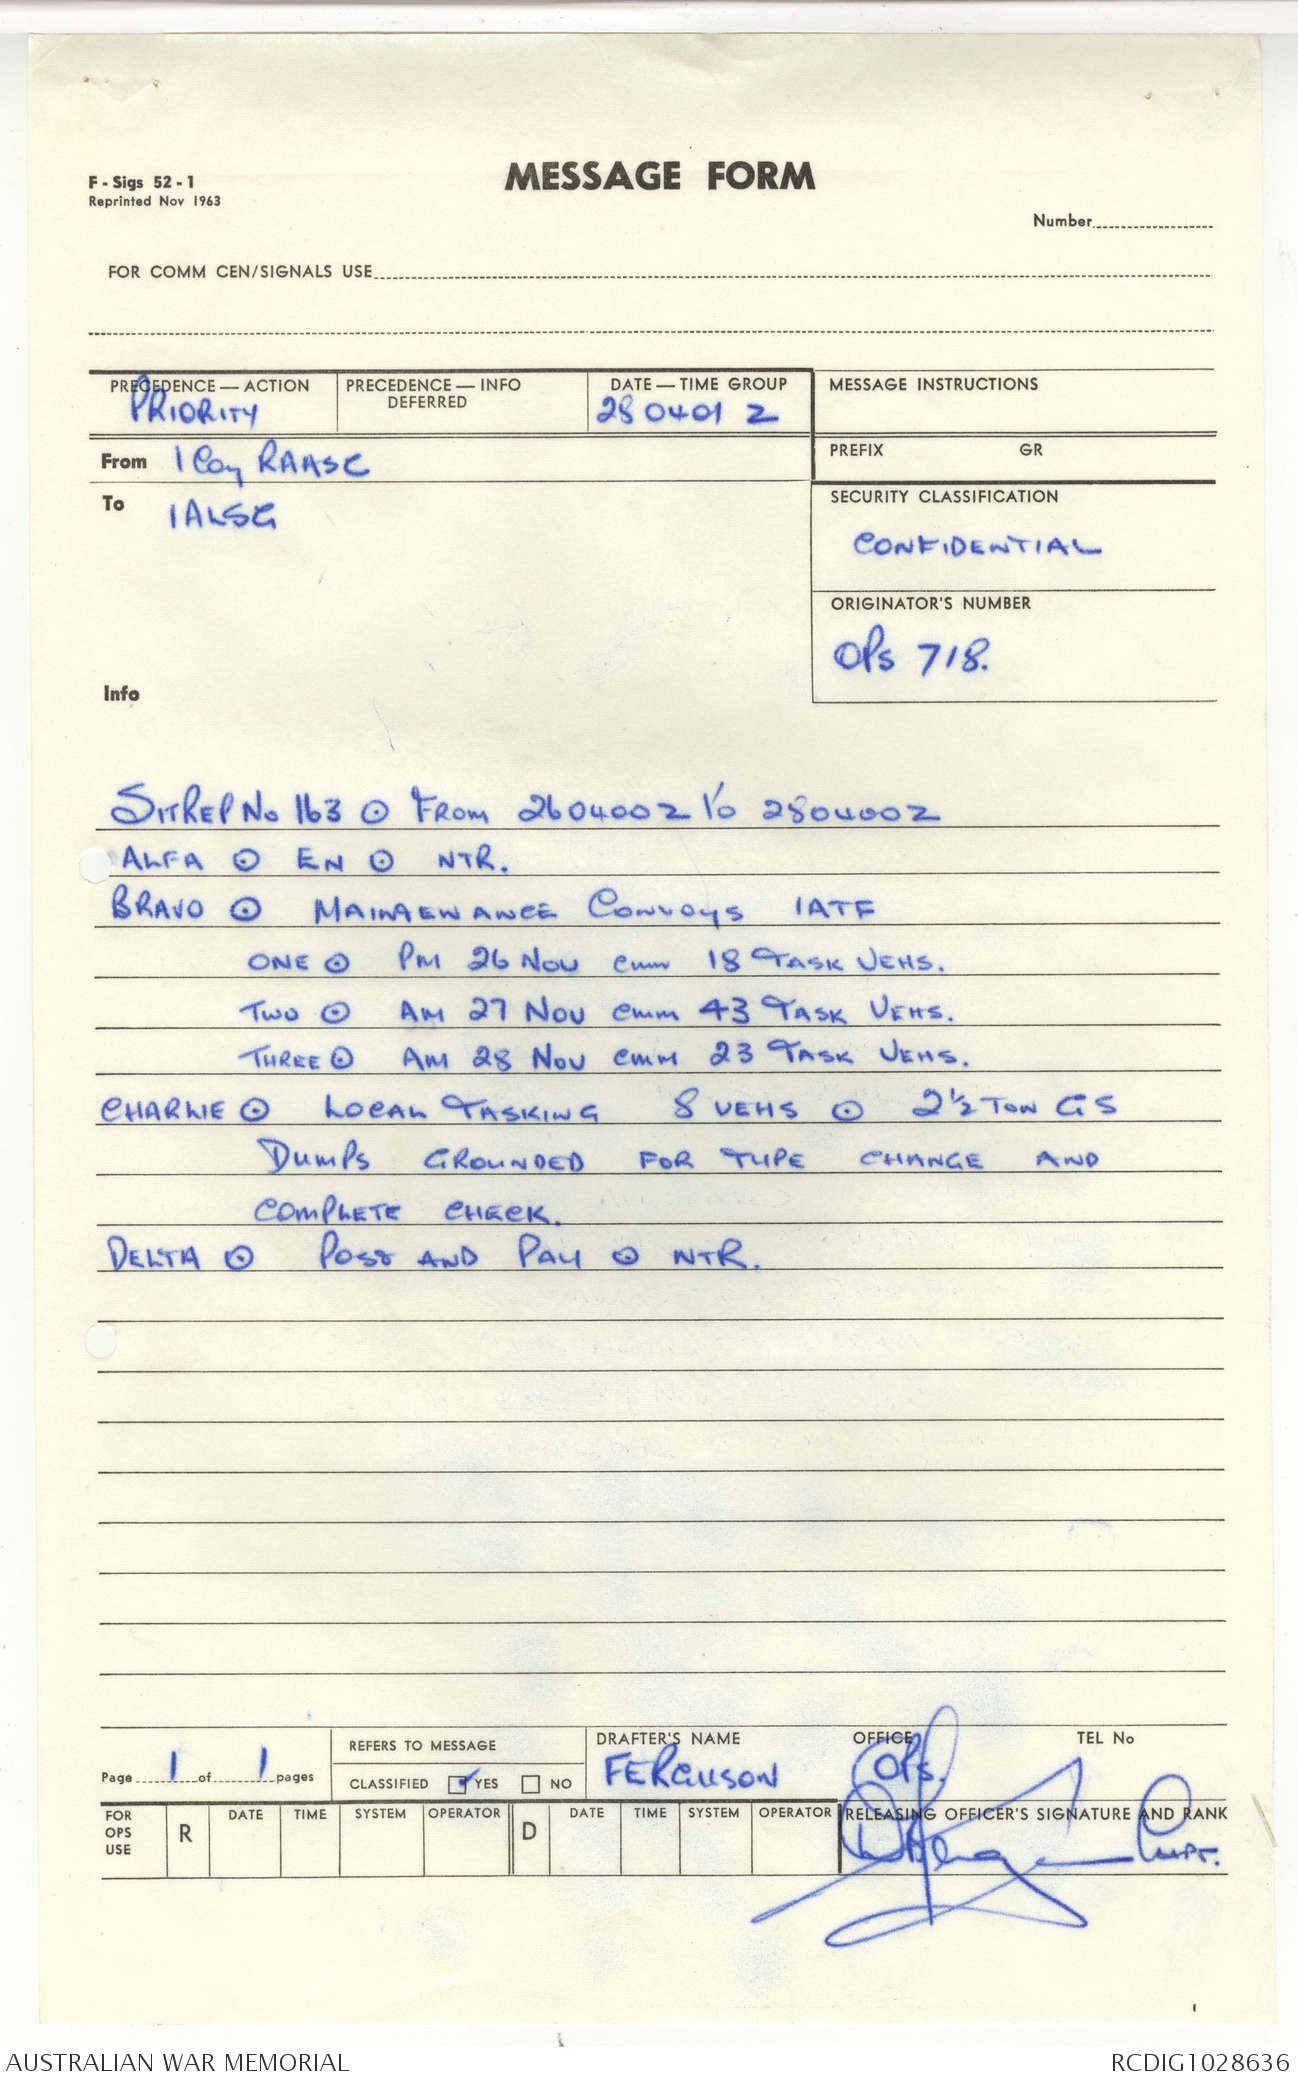 MESSAGE FORM
F - Sigs 52 - 1
Reprinted Nov 1963
Number
FOR COMM CEN/SIGNALS USE
PRECEDENCE — ACTION
PRIORITY
PRECEDENCE — INFO
DEFERRED
DATE — TIME GROUP
280401 Z
MESSAGE INSTRUCTIONS
From 1 Coy RAASC
PREFIX GR
To 1ALSG
SECURITY CLASSIFICATION
CONFIDENTIAL
ORIGINATOR'S NUMBER
OPS 718.
Info
SITREP No 163 ⊙ FROM 260400Z TO 280400Z
ALFA ⊙ EN ⊙ NTR.
BRAVO ⊙ MAINTENANCE CONVOYS 1ATF
ONE ⊙ PM 26 NOV cmm 18 TASK VEHS.
TWO ⊙ AM 27 NOV cmm 43 TASK VEHS.
THREE ⊙ AM 28 NOV cmm 23 TASK VEHS.
CHARLIE ⊙ LOCAL TASKING 8 VEHS ⊙ 2½ TON GS
DUMPS GROUNDED FOR TYPE CHANGE AND
COMPLETE CHECK.
DELTA ⊙ POST AND PAY ⊙ NTR.
Page 1 of 1 pages
REFERS TO MESSAGE
CLASSIFIED YES NO
DRAFTER'S NAME
FERGUSON
OFFICE
OPS.
TEL No
FOR OPS USE
R DATE TIME SYSTEM OPERATOR D DATE TIME SYSTEM OPERATOR
RELEASING OFFICER'S SIGNATURE AND RANK
CAPT.
AUSTRALIAN WAR MEMORIAL
RCDIG1028636